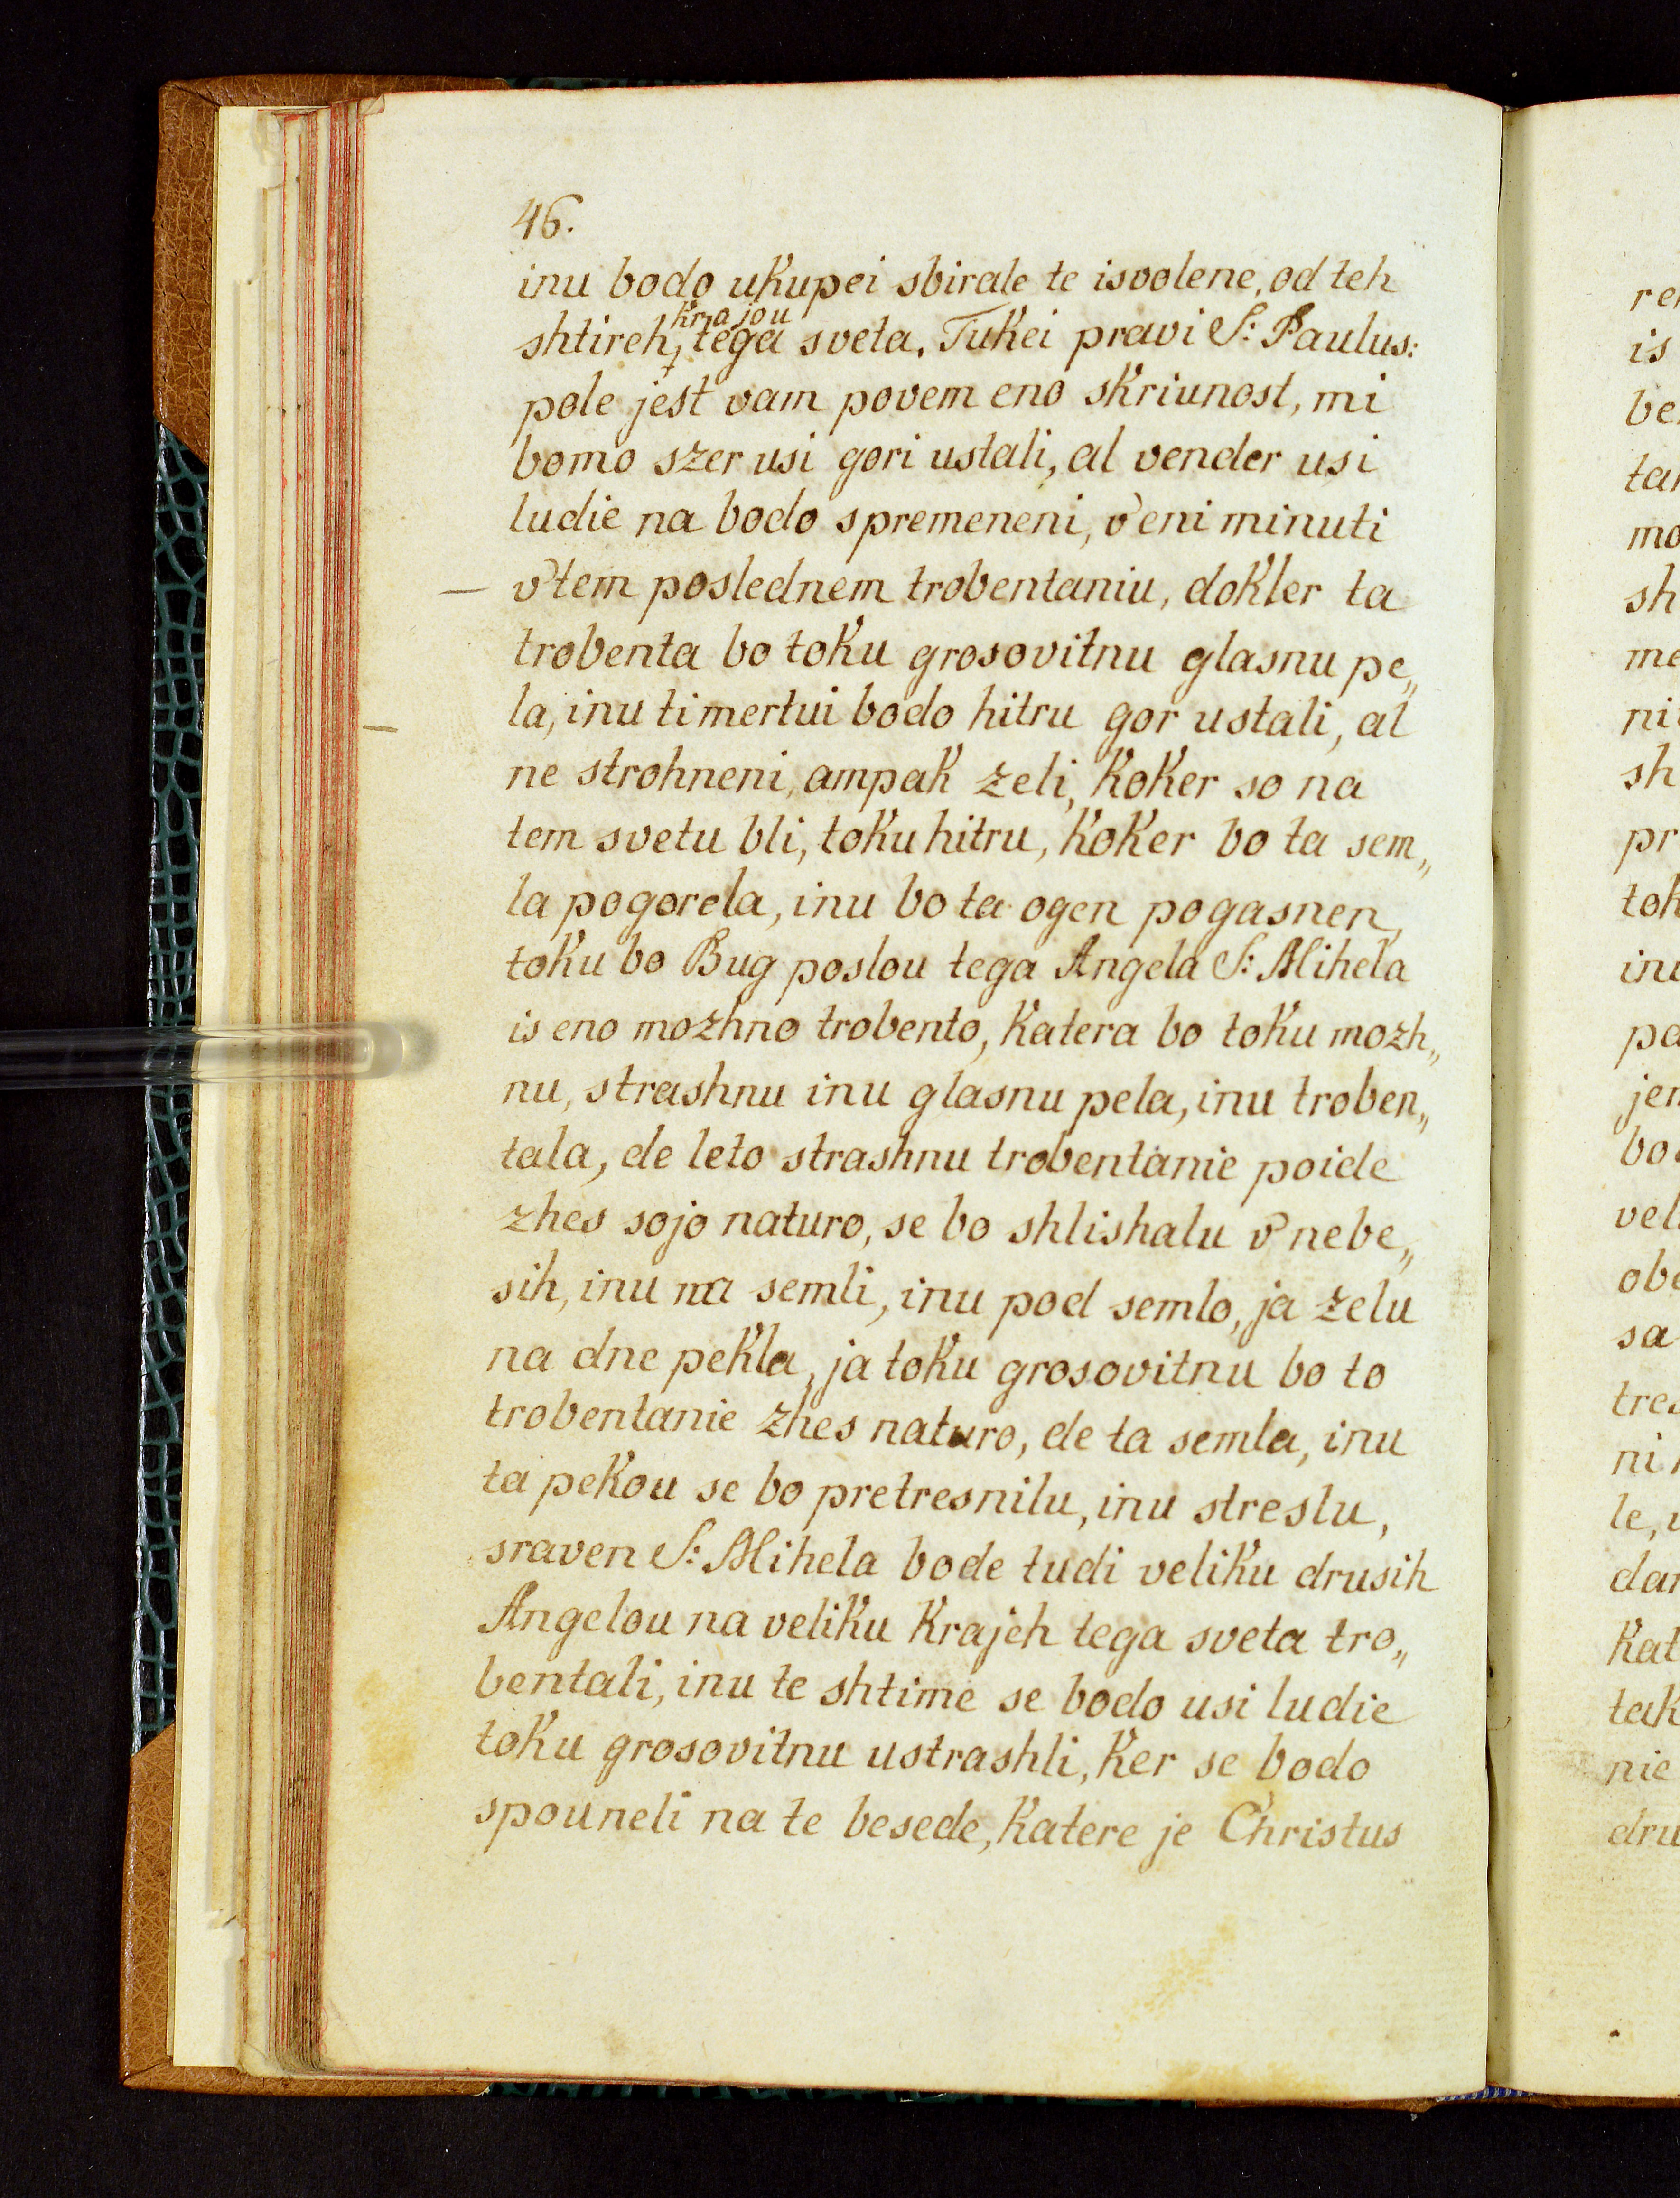 46.
inu bodo ukupei sbirale te isvolene, od teh
krajou
shtireh, tega sveta. Tukei pravi S: Paulus:
pole jest vam povem eno skriunost, mi
bomo szer usi gori ustali, al vender usi
ludie na bodo spremeneni, v'eni minuti
v'tem poslednem trobentaniu, dokler ta
trobenta bo toku grosovitnu glasnu pe„
la, inu ti mertui bodo hitru gor ustali, al
ne strohneni, ampak zeli, koker so na
tem svetu bli, toku hitru, koker bo ta sem„
la pogorela, inu bo ta ogen pogasnen,
toku bo Bug poslou tega Angela S: Mihela
is eno mozhno trobento, katera bo toku mozh„
nu, strashnu inu glasnu pela, inu troben„
tala, de leto strashnu trobentanie poide
zhes sojo naturo, se bo shlishalu v'nebe„
sih, inu na semli, inu pod semlo, ja zelu
na dne pekla, ja toku grosovitnu bo to
trobentanie zhes naturo, de ta semla, inu
ta pekou se bo pretresnilu, inu streslu,
sraven S: Mihela bode tudi veliku drusih
Angelou na veliku krajeh tega sveta tro„
bentali, inu te shtime se bodo usi ludie
toku grosovitnu ustrashli, ker se bodo
spouneli na te besede, katere je Christus